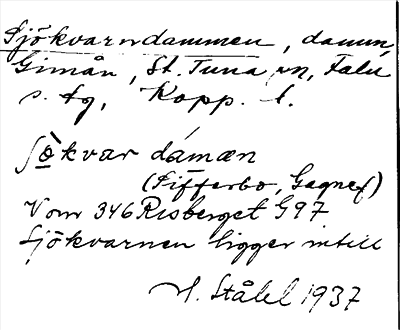 Sjökvarndammen, damm,
Gimån, St. Tuna sn, Falu
s. tg, Kopp. l.
ʃö̀kvar dámæn
(Sifferbo, Gagnef)
Vom 346 Risberget G 97
Sjökvarnen ligger intill
H. Ståhl 1937